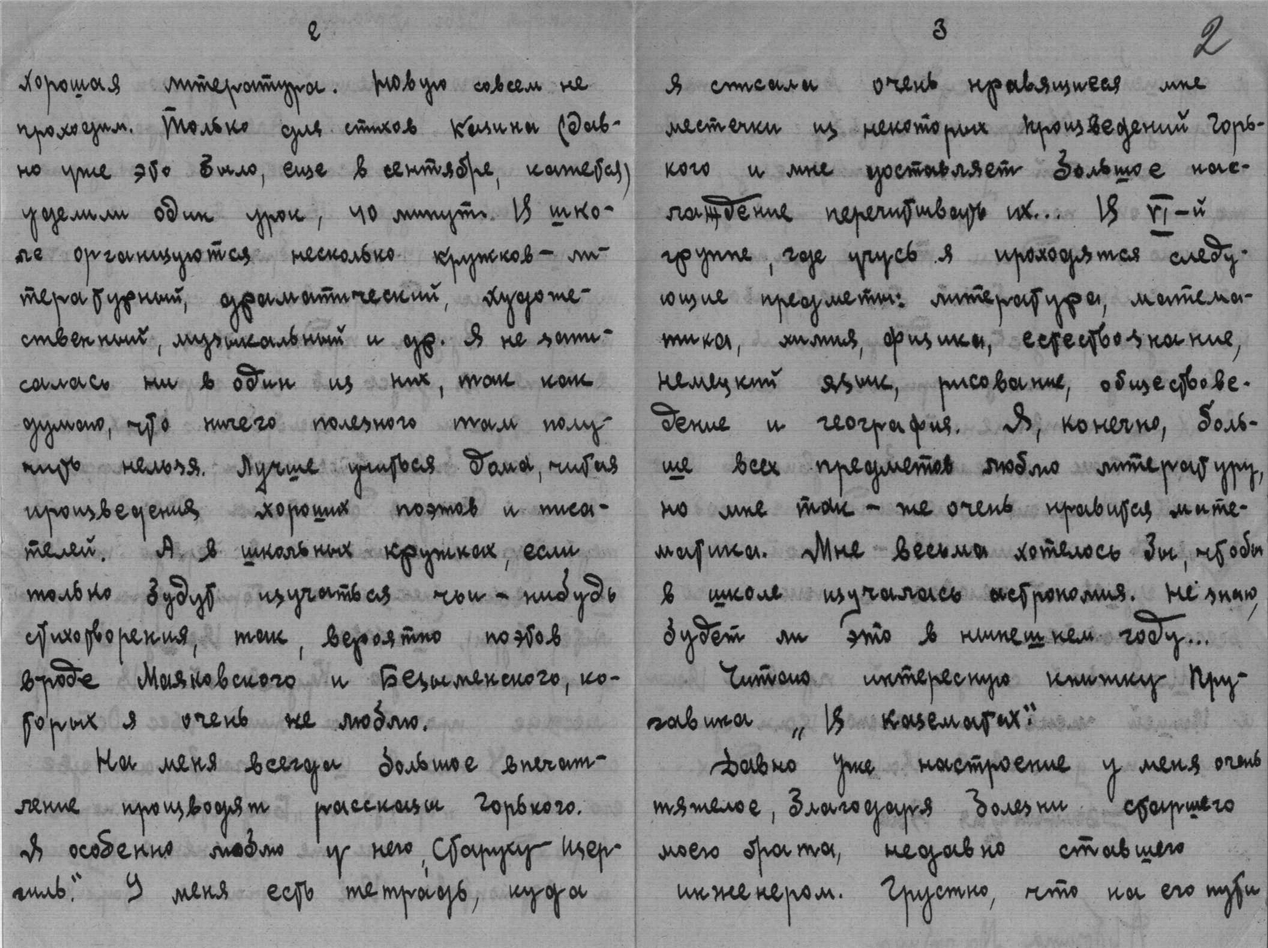 2
хорошая литература. Новую совсем не
проходим. Только для стихов Казина (дав-
но уже это было, еще в сентябре, кажется)
уделили один урок, 40 минут. В шко-
ле организуются несколько кружков – ли-
тературный, драматический, художе-
ственный, музыкальный и др. Я не запи-
салась ни в один из них, так как
думаю, что ничего полезного там полу-
чить нельзя. Лучше учиться дома, читая
произведения хороших поэтов и писа-
телей. А в школьных кружках, если
только будут изучаться чьи-нибудь
стихотворения, так, вероятно поэтов
вроде Маяковского и Безыменского, ко-
торых я очень не люблю.
На меня всегда большое впечат-
ление производят рассказы Горького.
Я особенно люблю у него „Старуху Изер-
гиль". У меня есть тетрадь, куда
3
2
я списала очень нравящиеся мне
местечки из некоторых произведений Горь-
кого и мне доставляет большое нас-
лаждение перечитывать их... В VI-й
группе, где учусь я проходятся следу-
ющие предметы: литература, матема-
тика, химия, физика, естествознание,
немецкий язык, рисование, обществове-
дение и география. Я, конечно, боль-
ше всех предметов люблю литературу,
но мне так-же очень нравится мате-
матика. Мне весьма хотелось бы, чтобы
в школе изучалась астрономия. Не знаю,
будет ли это в нынешнем году...
Читаю интересную книжку Пру-
гавина „В казематах".
Давно уже настроение у меня очень
тяжелое, благодаря болезни старшего
моего брата, недавно ставшего
инженером. Грустно, что на его пути